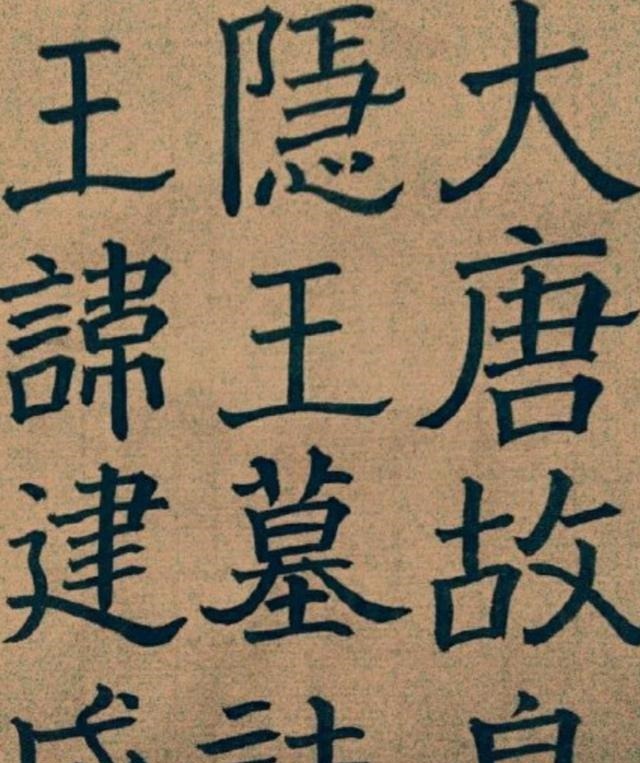 大唐故
隱王墓
王諱建